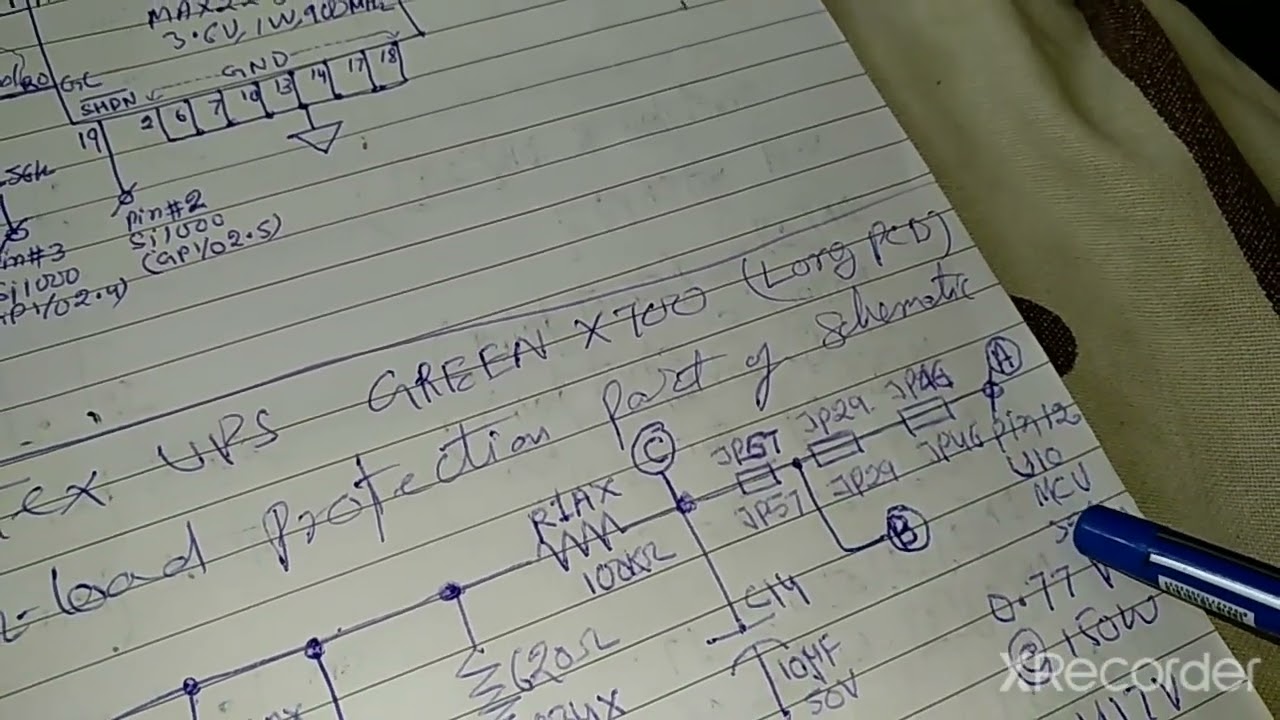 3.6V, 1W, 900MHz
GND
SHDN
2 6 7 10 13 14 17 18
19
56K
Pin#2
Si1000
(GPI/O2.5)
in#3
Si1000
GPI/O2.4)
ex UPS GREEN X700 (Long PCB)
-Load Protection Part of Schematic
A
C
JP57 JP29 JP46
JP57 JP29 JP46 Pin12
U10
MCU
B
R1AX
100KΩ
C14
10µF
50V
620Ω
0.77V
@150W
XRecorder